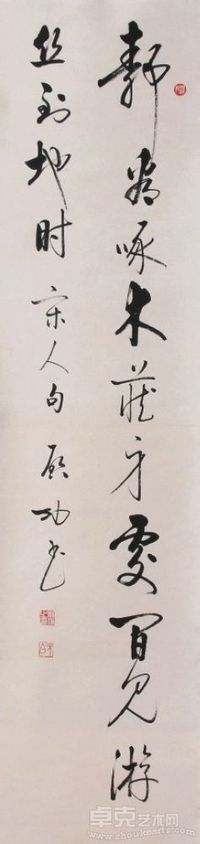 靜看啄木藏身處閒見游
丝到地时 宋人句 启功书
卓克艺术网
www.zhuokearts.com